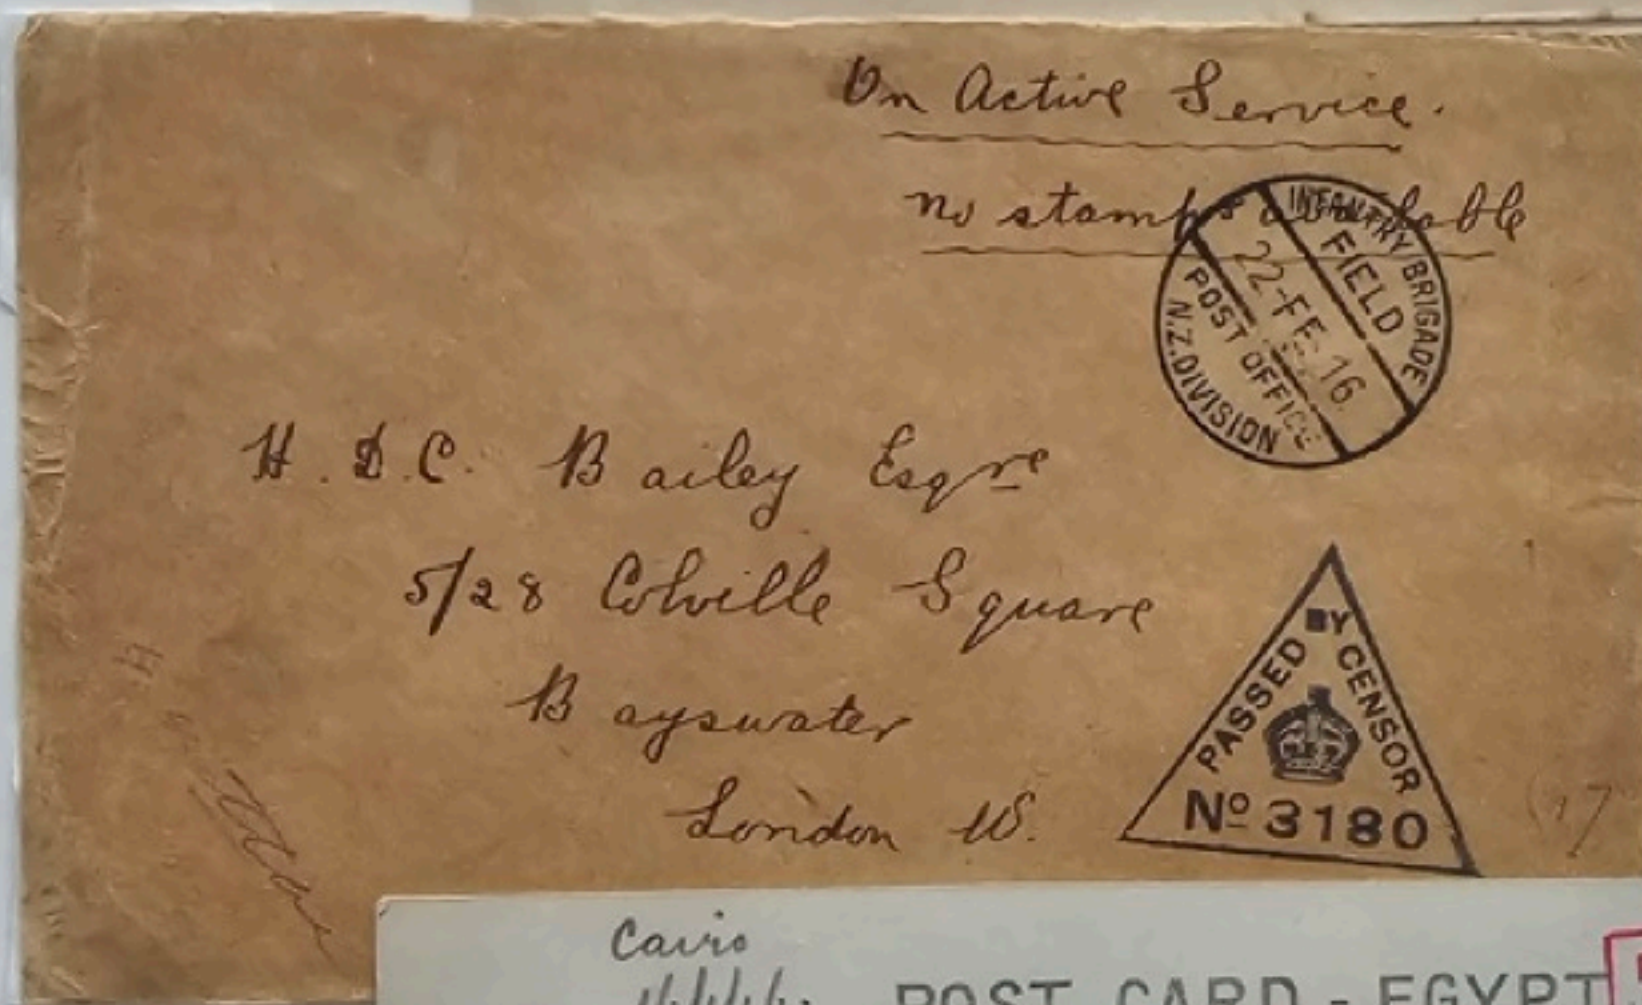 On Active Service.
no stamps available
INFANTRY BRIGADE
FIELD
22-FE 16
POST OFFICE
N.Z. DIVISION
H. D. C. Bailey Esqre
5/28 Colville Square
Bayswater
London W.
PASSED BY CENSOR
No 3180
Cairo
POST CARD - EGYPT